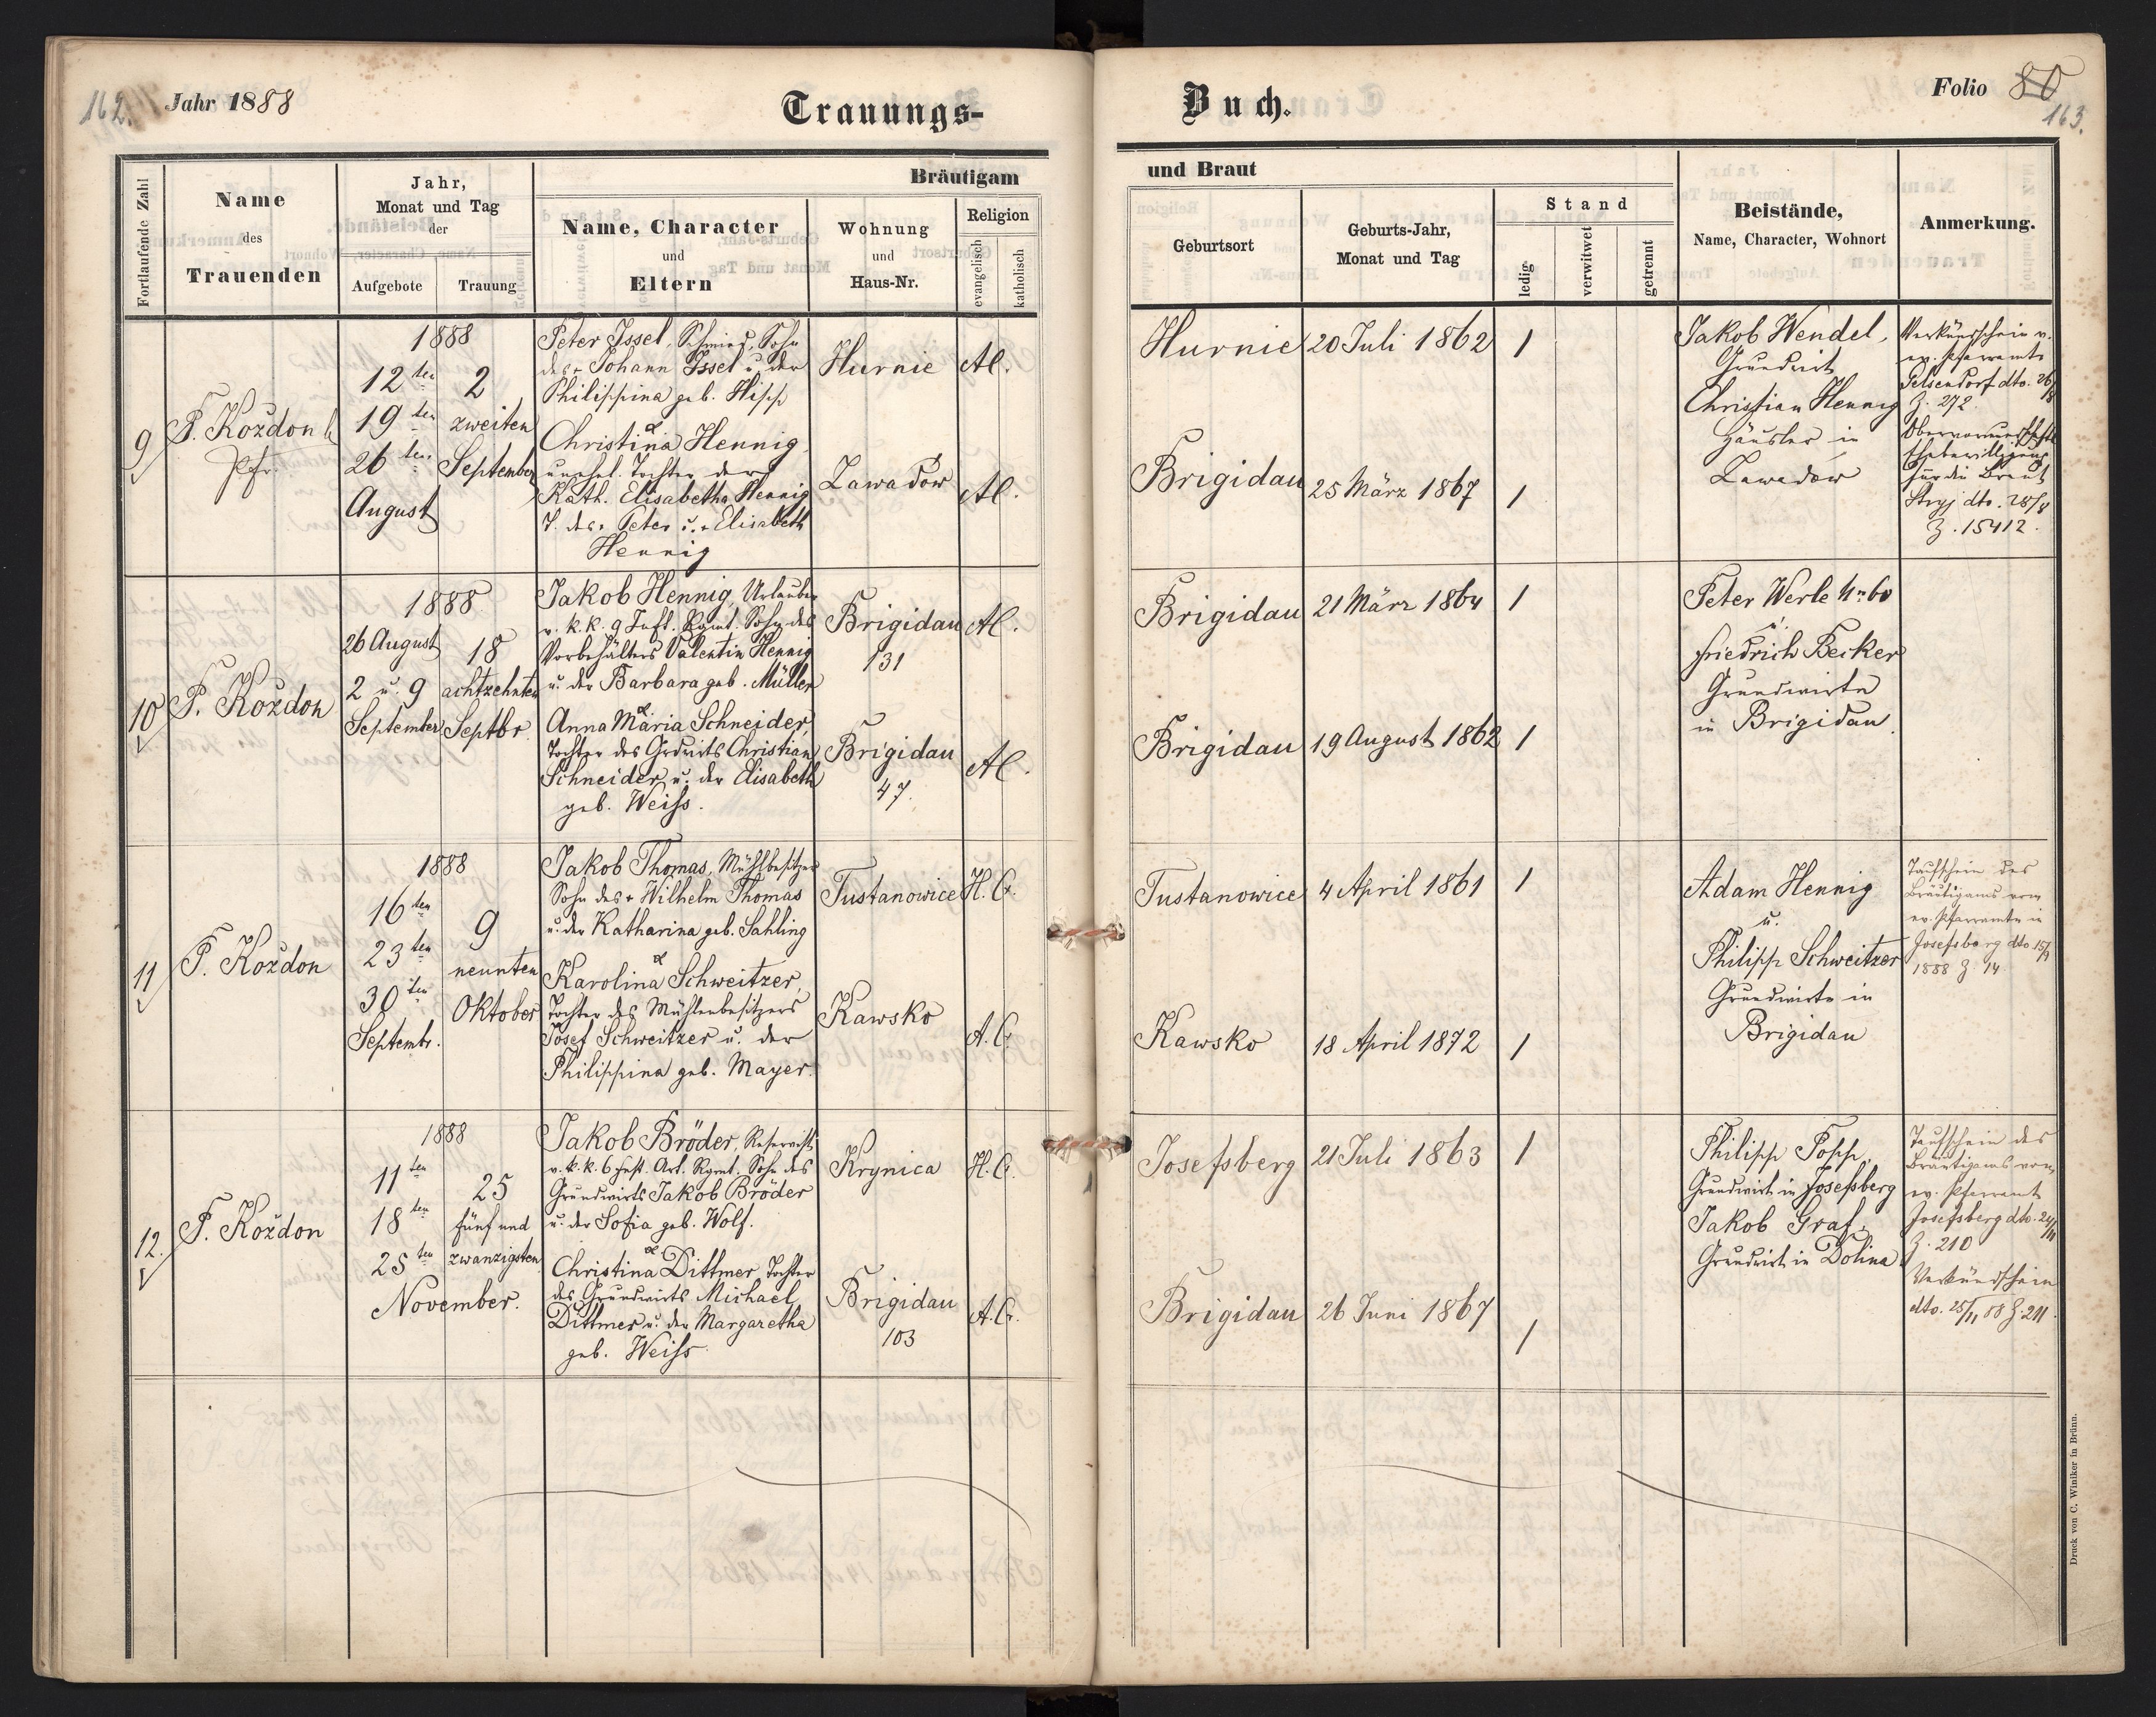 162.
Jahr 1888
Trauungs-
Buch.
Folio 80
163.
Fortlaufende Zahl
Name
des
Trauenden
Jahr,
Monat und Tag
der
Aufgebote
Trauung
Bräutigam
Name, Character
und
Eltern
Wohnung
und
Haus-Nr.
Religion
evangelisch
katholisch
und Braut
Geburtsort
Geburts-Jahr,
Monat und Tag
Stand
ledig
verwitwet
getrennt
Beistände,
Name, Character, Wohnort
Anmerkung.
9
F. Koždon
Pfr.
1888
12ten
19ten
26ten
August
2
zweiten
September
Peter Issel, Schmied, Sohn
des + Johann Issel u. der
Philippina geb. Hipp
&
Christina Hennig,
unehel. Tochter der
Kath. Elisabetha Hennig
T. des + Peter u. + Elisabeth
Hennig
Hurnie
Zawadow
Al.
Al.
Hurnie
20 Juli 1862
1
Brigidau
25 März 1867
1
Jakob Wendel,
Grundwirt
Christian Hennig
Häusler in
Zawadow
Verkündschein v.
ev. Pfarramte
Gelsendorf dto. 26/8
Z. 272.
Obervormundschaftl.
Ehebewilligung
für die Braut
Stryj dto. 28/8
Z. 15412.
10
F. Koždon
1888
26 August
2 u. 9
September
18
achtzehnten
Septbr.
Jakob Hennig, Urlauber
v. k. k. 9 Inft. Rgmt. Sohn des
Vorbehälters Valentin Hennig
u. der Barbara geb. Müller
&
Anna Maria Schneider,
Tochter des Grdwirts Christian
Schneider u. der Elisabeth
geb. Weiss.
Brigidau
131
Brigidau
47.
Al.
Al.
Brigidau
21 März 1864
1
Brigidau
19 August 1862
1
Peter Werle Nr 60
u.
Friedrich Becker
Grundwirte
in Brigidau.
11
F. Koždon
1888
16ten
23ten
30ten
Septembr.
9
neunten
Oktober
Jakob Thomas, Mühlbesitzer
Sohn des + Wilhelm Thomas
u. der Katharina geb. Sahling
&
Karolina Schweitzer,
Tochter des Mühlenbesitzers
Josef Schweitzer u. der
Philippina geb. Mayer.
Tustanowice
Kawsko
H. C.
A. C.
Tustanowice
4 April 1861
1
Kawsko
18 April 1872
1
Adam Hennig
u.
Philipp Schweitzer
Grundwirte in
Brigidau
Taufschein des
Bräutigams vom
ev. Pfarramte in
Josefsberg dto 15/9
1888 Z. 14
12.
F. Koždon
1888
11ten
18ten
25ten
November.
25
fünf und
zwanzigsten
Jakob Bröder, Reservist
v. k. k. 6 Fest. Art. Rgmt. Sohn des
Grundwirts Jakob Bröder
u. der Sofia geb. Wolf.
&
Christina Dittmer, Tochter
des Grundwirts Michael
Dittmer u. der Margaretha
geb. Weiss.
Krynica
Brigidau
103
H. C.
A. C.
Josefsberg
21 Juli 1863
1
Brigidau
26 Juni 1867
1
Philipp Popp,
Grundwirt in Josefsberg
Jakob Graf,
Grundwirt in Dolina
Taufschein des
Bräutigams vom
ev. Pfarramt
Josefsberg dto. 24/11
Z. 210
Verkündschein
dto. 25/11 88 Z. 211.
Druck von C. Winiker in Brünn.